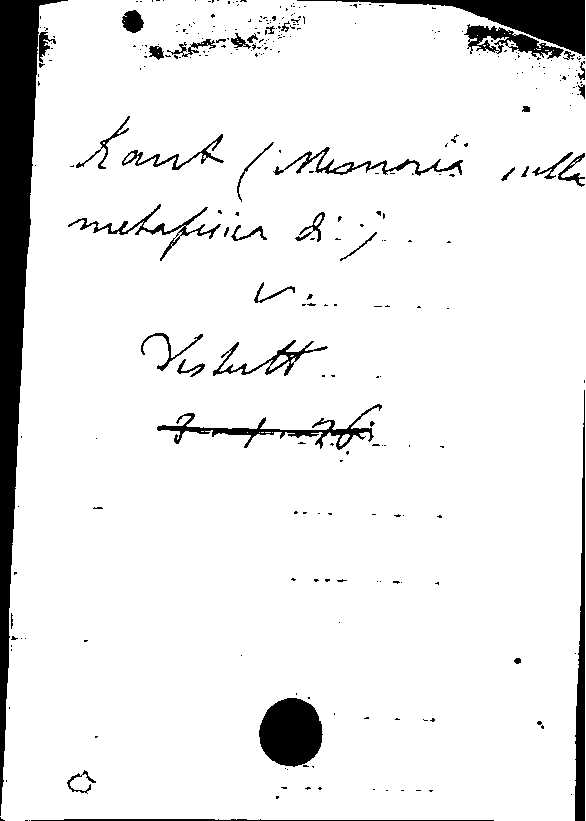 Kant (Memoria sulla
metafisica di)
V.
Testutt